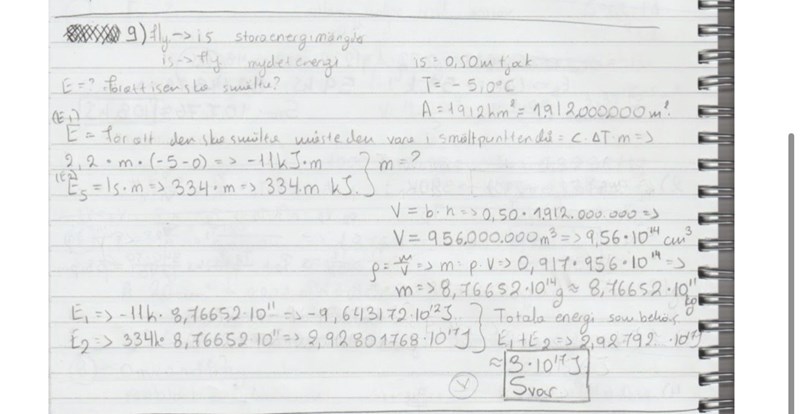 9) fly → is stora energimängder
is → fly mycket energi
is = 0,50m tjock
E = ? för att isen ska smälta?
T = -5,0°C
A = 1912 km² = 1.912.000.000 m².
(E₁)
E = för att den ska smälta måste den vara i smältpunkten då = c·ΔT·m =>
2,2 · m · (-5-0) => -11kJ·m } m = ?
(E₂)
Es = ls·m => 334·m => 334·m kJ.
V = b·h => 0,50 · 1.912.000.000 =>
V = 956.000.000 m³ => 9,56·10¹⁴ cm³
ρ = m/V => m = ρ·V => 0,917 · 956·10¹⁴ =>
m => 8,76652·10¹⁴g ≈ 8,76652·10¹¹ kg
E₁ => -11k· 8,76652·10¹¹ => -9,643172·10¹²J.
E₂ => 334k· 8,76652·10¹¹ => 2,92801768·10¹⁷J
Totala energi som behövs
E₁+E₂ => 2,92792 ·10¹⁷J
≈ 3·10¹⁷J
Svar